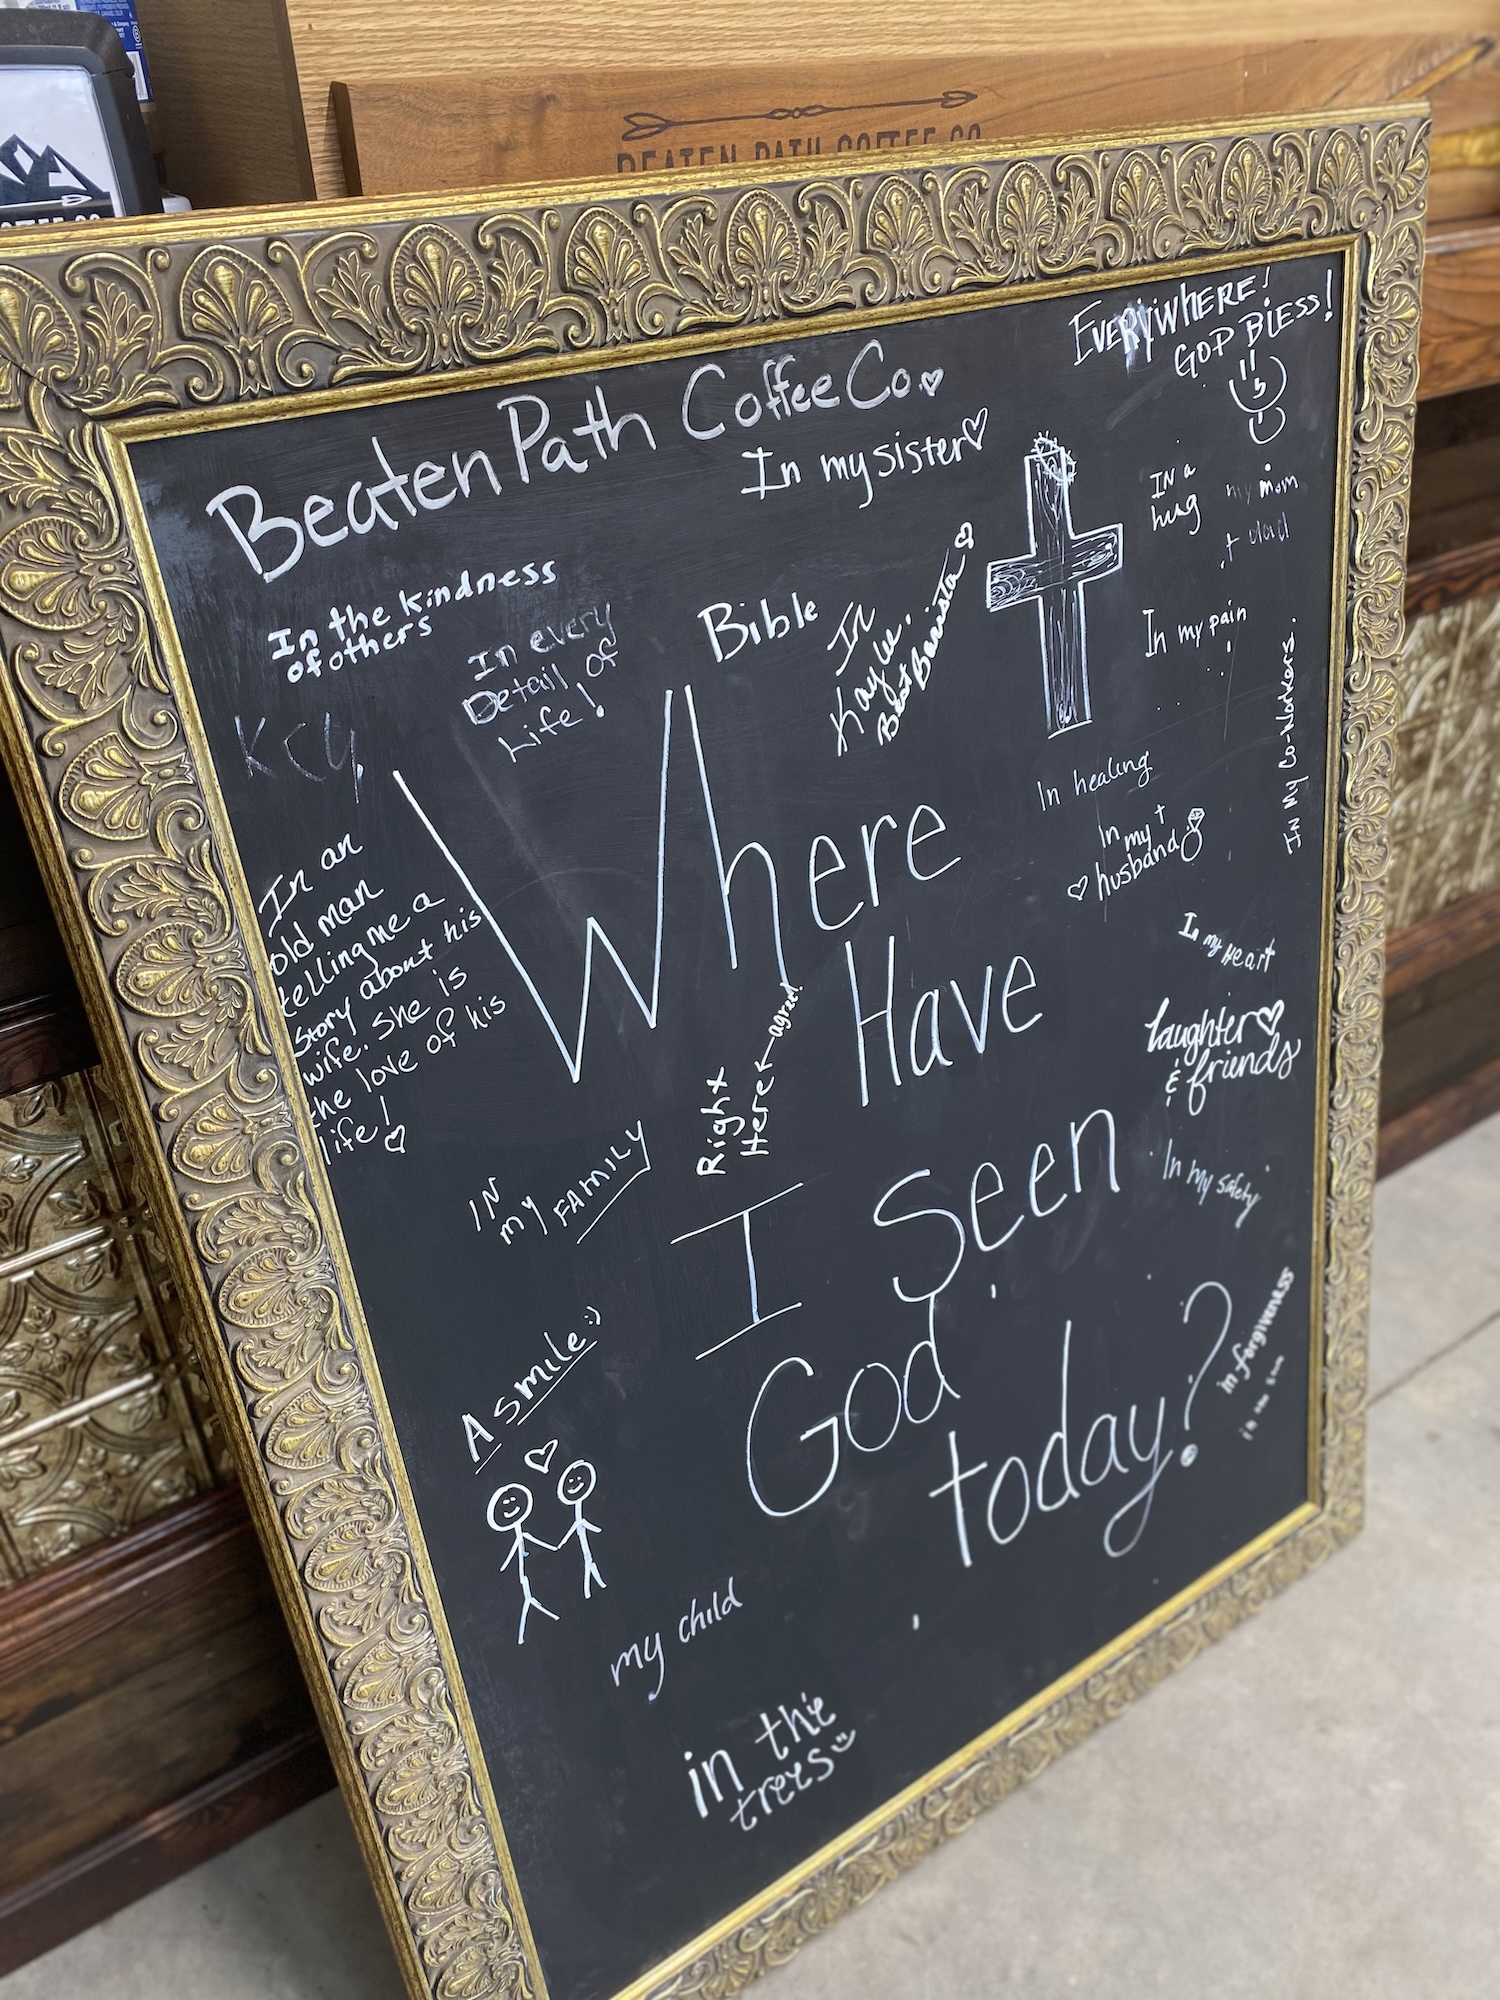 BEATEN PATH COFFEE CO
EVERYWHERE!
GOD BLESS!
Beaten Path Coffee Co.
In my sister
In a
hug
my mom
+ dad
In the kindness
of others
In every
Detail of
Life!
Bible
In
Kaylee.
Best Barista
In my pain
In My Co-Workers.
KCY
In healing
In my
husband
In an
old man
telling me a
story about his
wife. She is
the love of his
life!
Where
Have
I Seen
God
today?
In my heart
laughter
& friends
Right
Here
agree!
IN
my FAMILY
In my safety
in forgiveness
A smile :)
my child
in the
trees